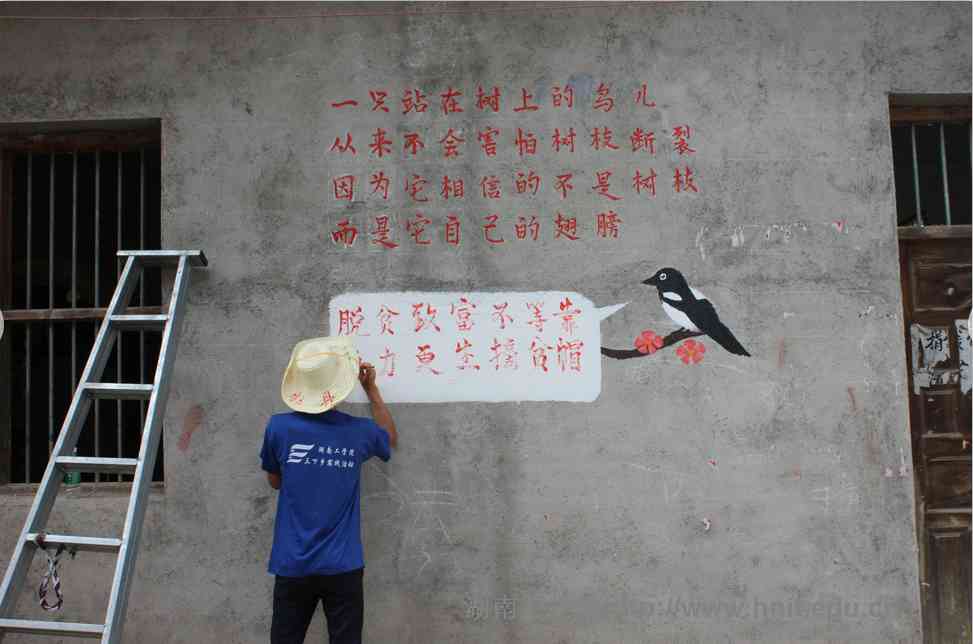 一只站在树上的鸟儿
从来不会害怕树枝断裂
因为它相信的不是树枝
而是它自己的翅膀
脱贫致富不等靠
力更生摘贫帽
湖南工学院
三下乡实践活动
湖南